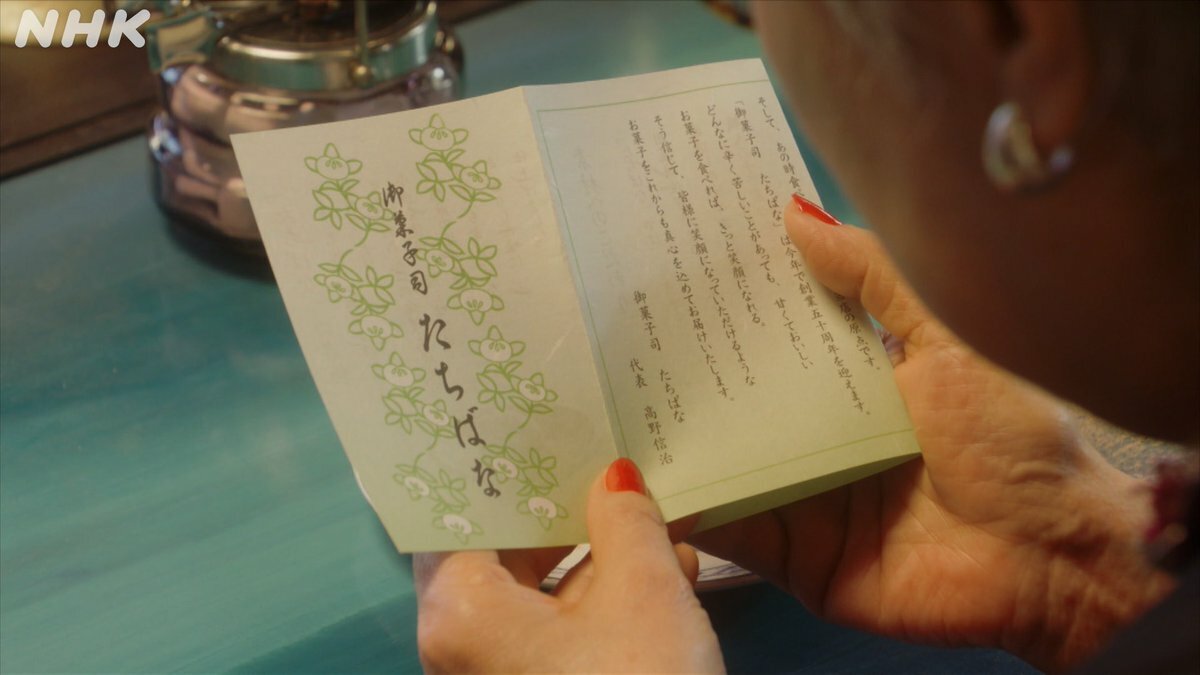 NHK
御菓子司 たちばな
そして、あの時食
の原点です。
「御菓子司 たちばな」は今年で創業五十周年を迎えます。
どんなに辛く苦しいことがあっても、甘くておいしい
お菓子を食べれば、きっと笑顔になれる。
そう信じて、皆様に笑顔になっていただけるような
お菓子をこれからも真心を込めてお届けいたします。
御菓子司 たちばな
代表 高野信治